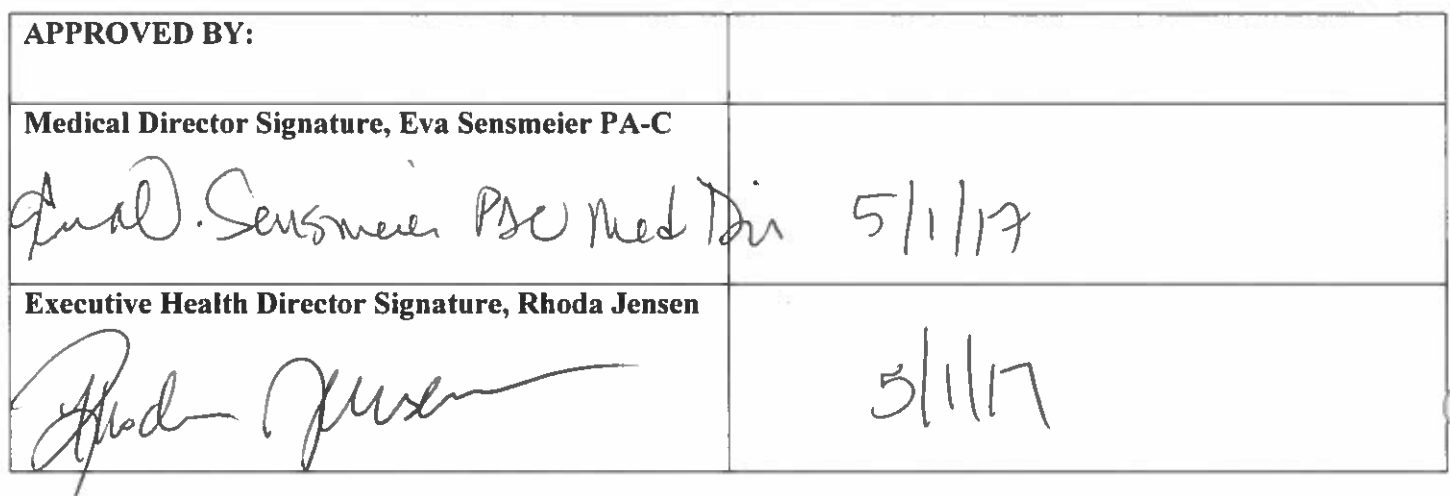 APPROVED BY:
Medical Director Signature, Eva Sensmeier PA-C
Eva D. Sensmeier PAC Med Dir 5/1/17
Executive Health Director Signature, Rhoda Jensen
Rhoda Jensen 5/1/17